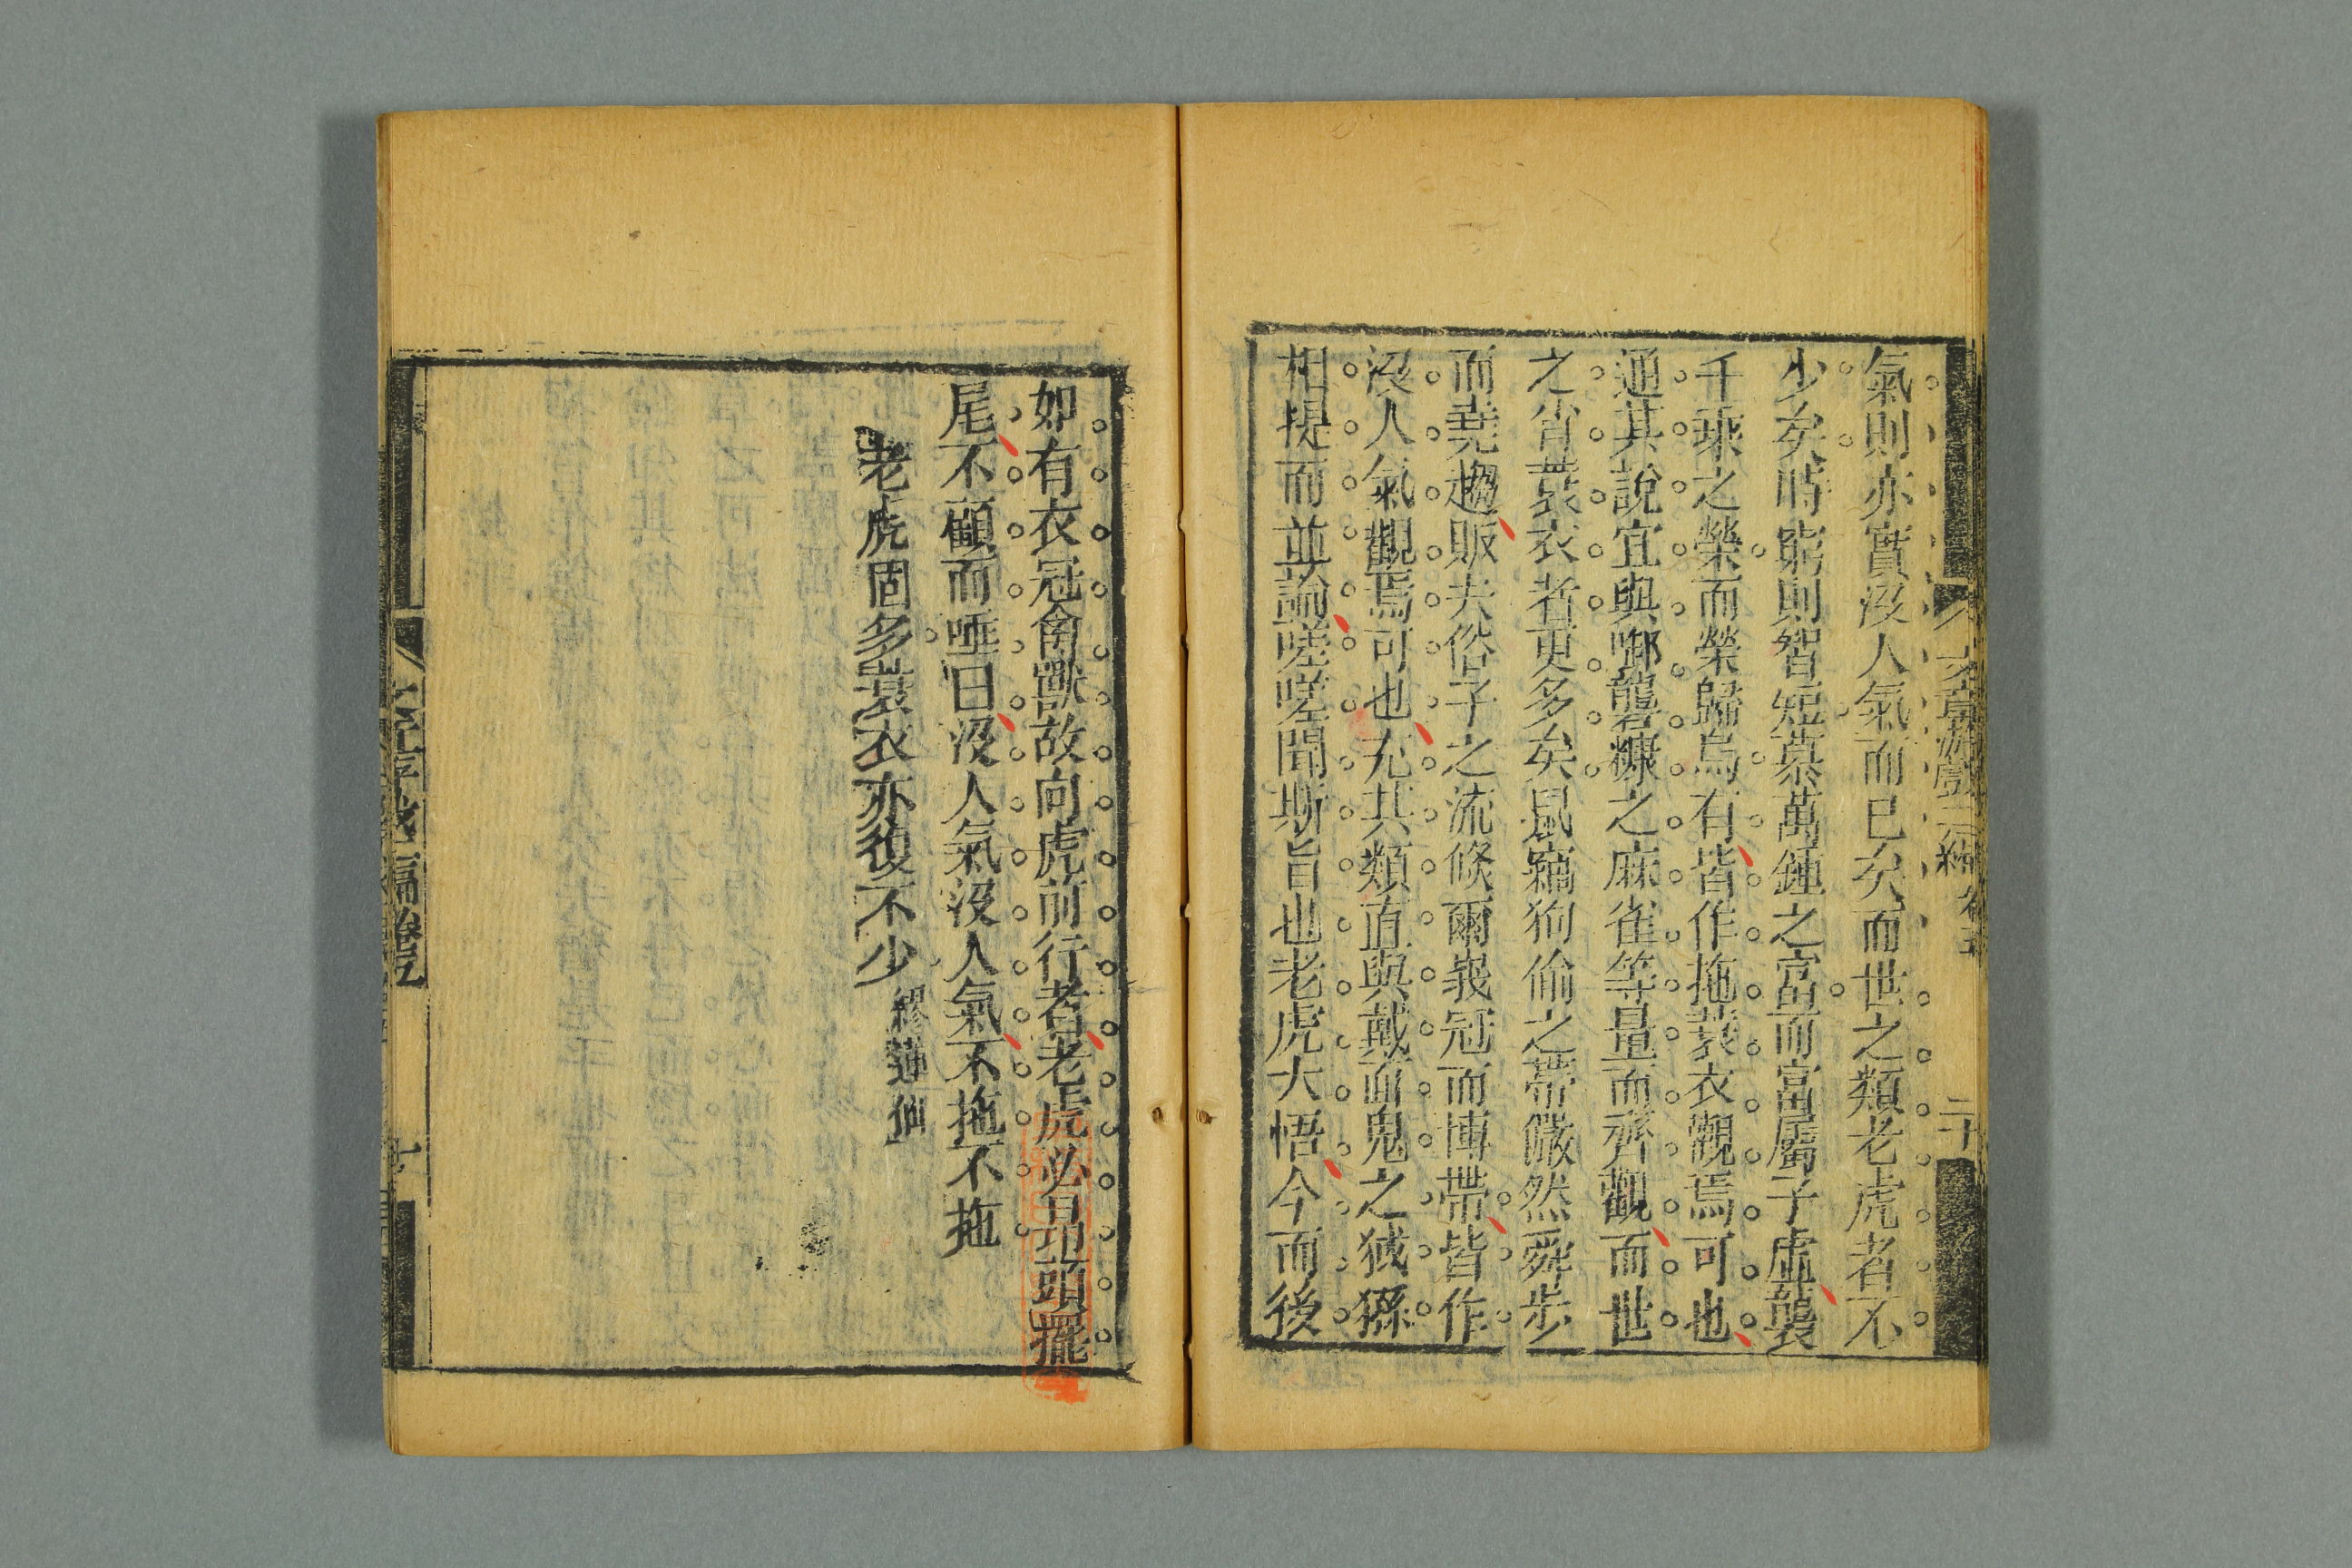 文章游戲二編 卷五
二十
氣則亦實沒人氣而已矣而世之類老虎者不
少矣時窮則智短慕萬鍾之富而富屬子虛襲
千乘之榮而榮歸烏有皆作拖蓑衣觀焉可也
通其說宜與啷礱糠之麻雀等量而齊觀而世
之肖蓑衣者更多矣鼠竊狗偷之幕儼然舜步
而堯趨販夫俗子之流倏爾峩冠而博帶皆作
沒人氣觀焉可也充其類直與戴面鬼之狨猻
相提而並論嗟嗟聞斯旨也老虎大悟今而後
如有衣冠禽獸故向虎前行者老虎必昂頭擺
尾不顧而唾曰沒人氣沒人氣不拖不拖
老虎固多蓑衣亦復不少 繆蓮仙